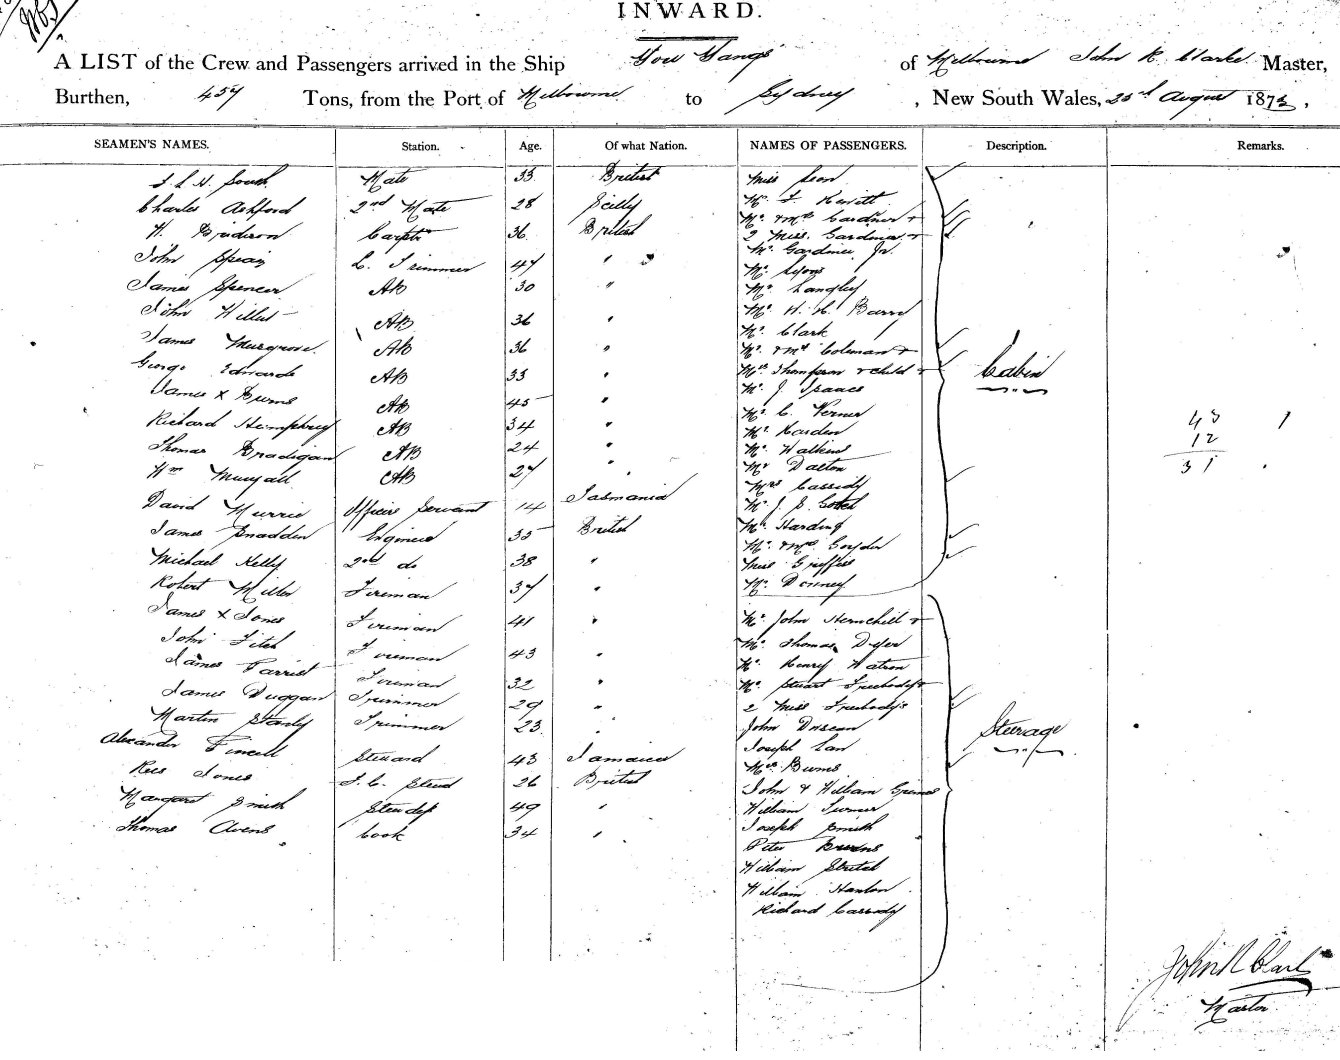 INWARD.
A LIST of the Crew and Passengers arrived in the Ship You Yangs of Melbourne John R. Clarke Master,
Burthen, 457 Tons, from the Port of Melbourne to Sydney, New South Wales, 25th August 1873,
SEAMEN'S NAMES. Station. Age. Of what Nation. NAMES OF PASSENGERS. Description. Remarks.
Mate 33 British
Charles Ashford 2nd Mate 28 Scilly
Carptr 36 British
John Speair L. Trimmer 47 "
James Spencer AB 30 "
John Willis AB 36 "
James Musgrove AB 36 "
George Edwards AB 33 "
James x Burns AB 45 "
Richard Humphrey AB 34 "
Thomas Bradigan AB 24 "
Wm AB 27 "
David Murrie Officers Servant 14 Tasmania
James Snadden Engineer 35 British
Michael Kelly 2nd do 38 "
Robert Miller Fireman 37 "
James x Jones Fireman 41 "
John Fitch Fireman 43 "
James Farrist Fireman 32 "
James Duggan Trimmer 29 "
Martin Stanly Trimmer 23 "
Alexander Steward 43 Jamaica
Rees Jones F. C. Steward 26 British
Margaret Smith Stewdss 49 "
Thomas Avens Cook 34 "
Miss
Mr F Hewitt
Mr & Mrs Gardner +
2 Miss Gardiner +
Mr Gardiner Jr.
Mr Lyons
Mr Langley
Mr H. H. Barry
Mr Clark
Mr & Mrs Coleman +
Mrs Thompson & child +
Mr J Isaacs
Mr C. Verner
Mr Harden
Mr Watkins
Mr Dalton
Mrs Cassidy
Mr J. S.
Mr Harding
Mr & Mrs Goyder
Miss Griffiss
Mr Denney
Cabin
Mr John Hemchill +
Mr Thomas Dyer
Mr Henry Watson
Mr Stuart Treebody +
2 Miss Treebodys
John Duscan
Joseph Lan
Mrs Burns
John & William Grimes
William Turner
Joseph Smith
Peter Burns
William Stretch
William Hanlon
Richard Cassidy
Steerage
43
12
31
John R Clark
Master